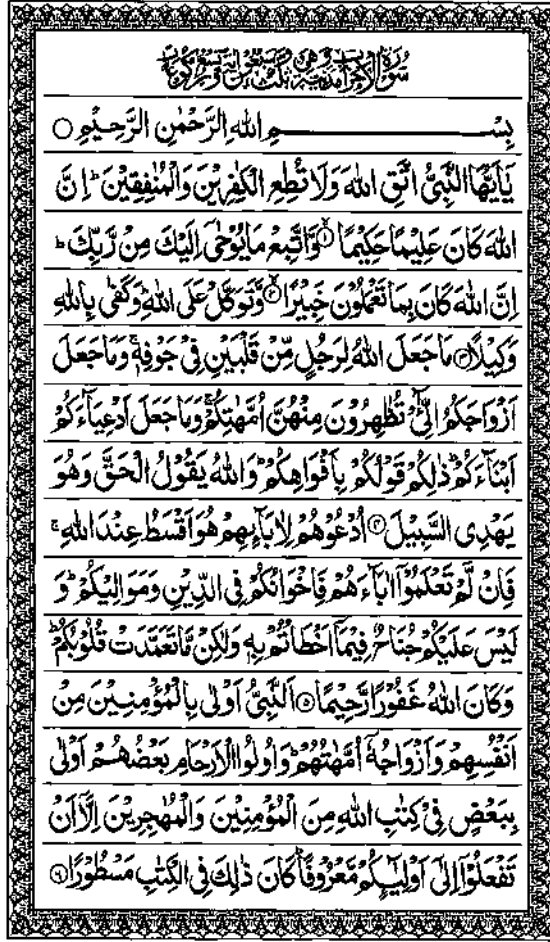 سورة الاحزاب مدنية وهى ثلث وسبعون اية وتسع ركوعات
بِسْــــــمِ اللهِ الرَّحْمٰنِ الرَّحِيْمِ ○
يٰۤاَيُّهَا النَّبِىُّ اتَّقِ اللهَ وَلَا تُطِعِ الْكٰفِرِيْنَ وَالْمُنٰفِقِيْنَ ؕ اِنَّ
اللهَ كَانَ عَلِيْمًا حَكِيْمًا ۙ﴿۱﴾ وَّاتَّبِعْ مَا يُوْحٰۤى اِلَيْكَ مِنْ رَّبِّكَ ؕ
اِنَّ اللهَ كَانَ بِمَا تَعْمَلُوْنَ خَبِيْرًا ۙ﴿۲﴾ وَّتَوَكَّلْ عَلَى اللهِ ؕ وَكَفٰى بِاللهِ
وَكِيْلًا ﴿۳﴾ مَا جَعَلَ اللهُ لِرَجُلٍ مِّنْ قَلْبَيْنِ فِىْ جَوْفِهٖ ۚ وَمَا جَعَلَ
اَزْوَاجَكُمُ الّٰٓـئِْ تُظٰهِرُوْنَ مِنْهُنَّ اُمَّهٰتِكُمْ ۚ وَمَا جَعَلَ اَدْعِيَآءَكُمْ
اَبْنَآءَكُمْ ؕ ذٰلِكُمْ قَوْلُكُمْ بِاَفْوَاهِكُمْ ؕ وَاللهُ يَقُوْلُ الْحَقَّ وَهُوَ
يَهْدِى السَّبِيْلَ ﴿۴﴾ اُدْعُوْهُمْ لِاٰبَآئِهِمْ هُوَ اَقْسَطُ عِنْدَ اللهِ ۚ
فَاِنْ لَّمْ تَعْلَمُوْۤا اٰبَآءَهُمْ فَاِخْوَانُكُمْ فِى الدِّيْنِ وَمَوَالِيْكُمْ ؕ وَ
لَيْسَ عَلَيْكُمْ جُنَاحٌ فِيْمَاۤ اَخْطَاْتُمْ بِهٖ وَلٰكِنْ مَّا تَعَمَّدَتْ قُلُوْبُكُمْ ؕ
وَكَانَ اللهُ غَفُوْرًا رَّحِيْمًا ﴿۵﴾ اَلنَّبِىُّ اَوْلٰى بِالْمُؤْمِنِيْنَ مِنْ
اَنْفُسِهِمْ وَاَزْوَاجُهٗۤ اُمَّهٰتُهُمْ ؕ وَاُولُوا الْاَرْحَامِ بَعْضُهُمْ اَوْلٰى
بِبَعْضٍ فِىْ كِتٰبِ اللهِ مِنَ الْمُؤْمِنِيْنَ وَالْمُهٰجِرِيْنَ اِلَّاۤ اَنْ
تَفْعَلُوْۤا اِلٰۤى اَوْلِيٰٓئِكُمْ مَّعْرُوْفًا ؕ كَانَ ذٰلِكَ فِى الْكِتٰبِ مَسْطُوْرًا ﴿۶﴾